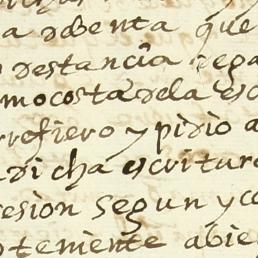 a de benta que
destancia rega
mo costa de la esc
rrefiero y pidio a
dicha escritura
esion segun y co
temiente abie